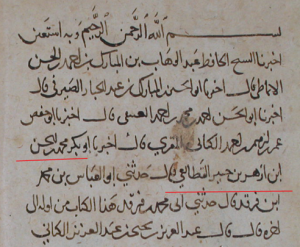 بسم الله الرحمن الرحيم وبه استعين
اخبرنا الشيخ الحافظ عبد الوهاب بن المبارك بن احمد بن الحسن
الانماطي قال اخبرنا ابو الحسين المبارك بن عبد الجبار الصيرفي قال
اخبرنا ابو الحسن احمد بن محمد بن احمد العتيقي قال اخبرنا ابو حفص
عمر بن ابراهيم بن احمد الكتاني المقري قال اخبرنا ابو بكر محمد بن الحسن
ابن ازهر بن جبير القطائعي قال حدثني ابو العباس بن محمد
ابن فرقد قال حدثني ابي محمد بن فرقد هذا الكتاب من اوله الى
اخره قال قال عبد العزيز بن يحيى بن عبد العزيز الكناني